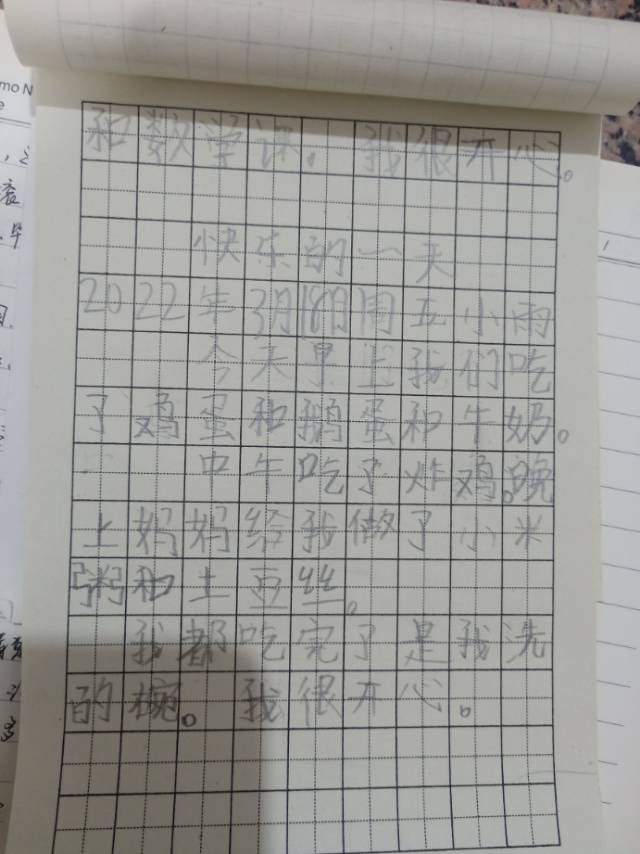 和数学课。我很开心。
快乐的一天
2022年3月18日周五小雨
今天早上我们吃
了鸡蛋和鹅蛋和牛奶。
中午吃了炸鸡。晚
上妈妈给我做了小米
粥和土豆丝。
我都吃完了是我洗
的碗。我很开心。